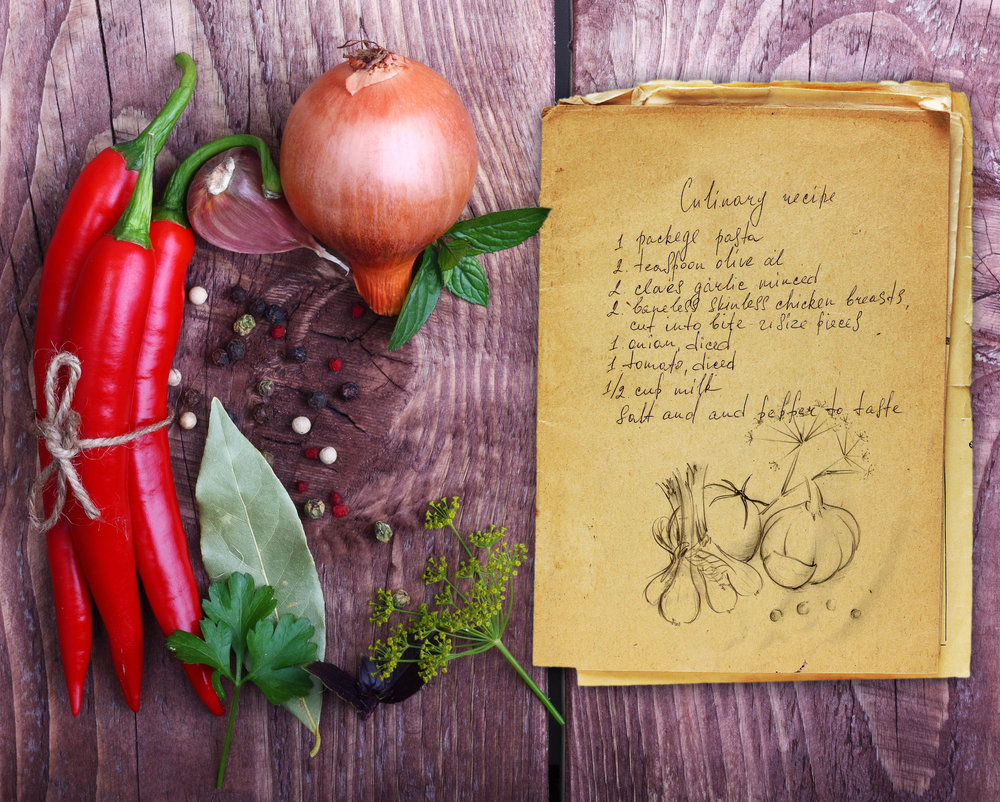 Culinary recipe
1 packege pasta
2. teaspoon olive oil
2 cloves garlic minced
2 boneless skinless chicken breasts,
cut into bite-size pieces
1 onion, diced
1 tomato, diced
1/2 cup milk
Salt and and pepper to taste